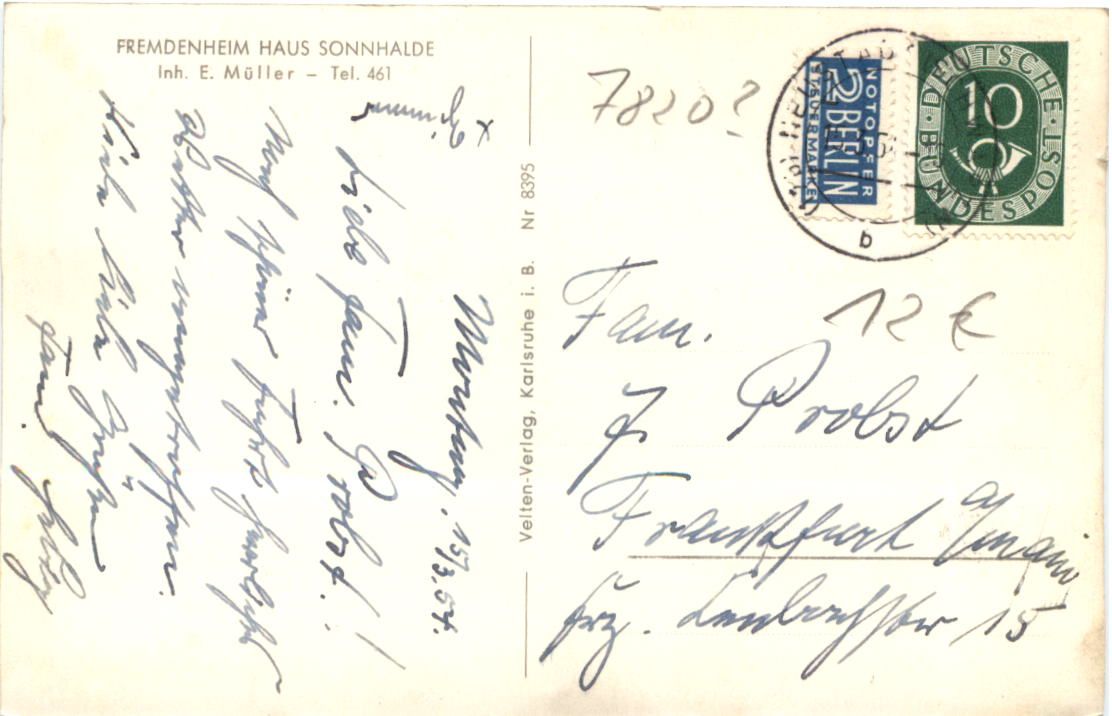 FREMDENHEIM HAUS SONNHALDE
Inh. E. Müller – Tel. 461
Montag, 15/3.54.
Liebe Fam. Probst!
Nach schöner Fahrt herrliches
Wetter angetroffen.
Viele liebe Grüße
Fam.
Velten-Verlag, Karlsruhe i. B. Nr 8395
7820?
NOTOPFER
2 BERLIN
STEUERMARKE
DEUTSCHE
BUNDESPOST
10
b
12 €
Fam.
J. Probst
Frankfurt a/Main
Frz. Lenbachstr 15